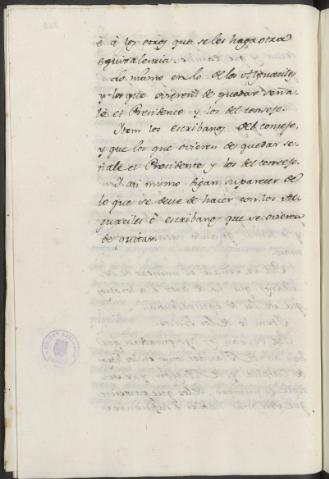 è à los otros que se les haga otra
equivalencia.
Lo mismo en lo de los Alguaciles
y los que ovieren de quedar seña-
le el Presidente y los del consejo.
Item los escribanos del consejo,
y que los que ovieren de quedar se-
ñale el Presidente y los del consejo.
I asi mismo digan su parecer de
lo que se deve de hacer con los Al-
guaciles è escribanos que se ovieren
de quitar.